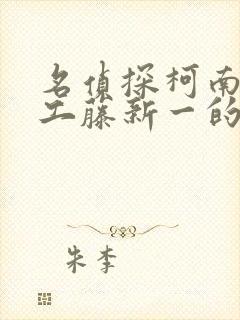 名侦探柯南
工藤新一的
朱李